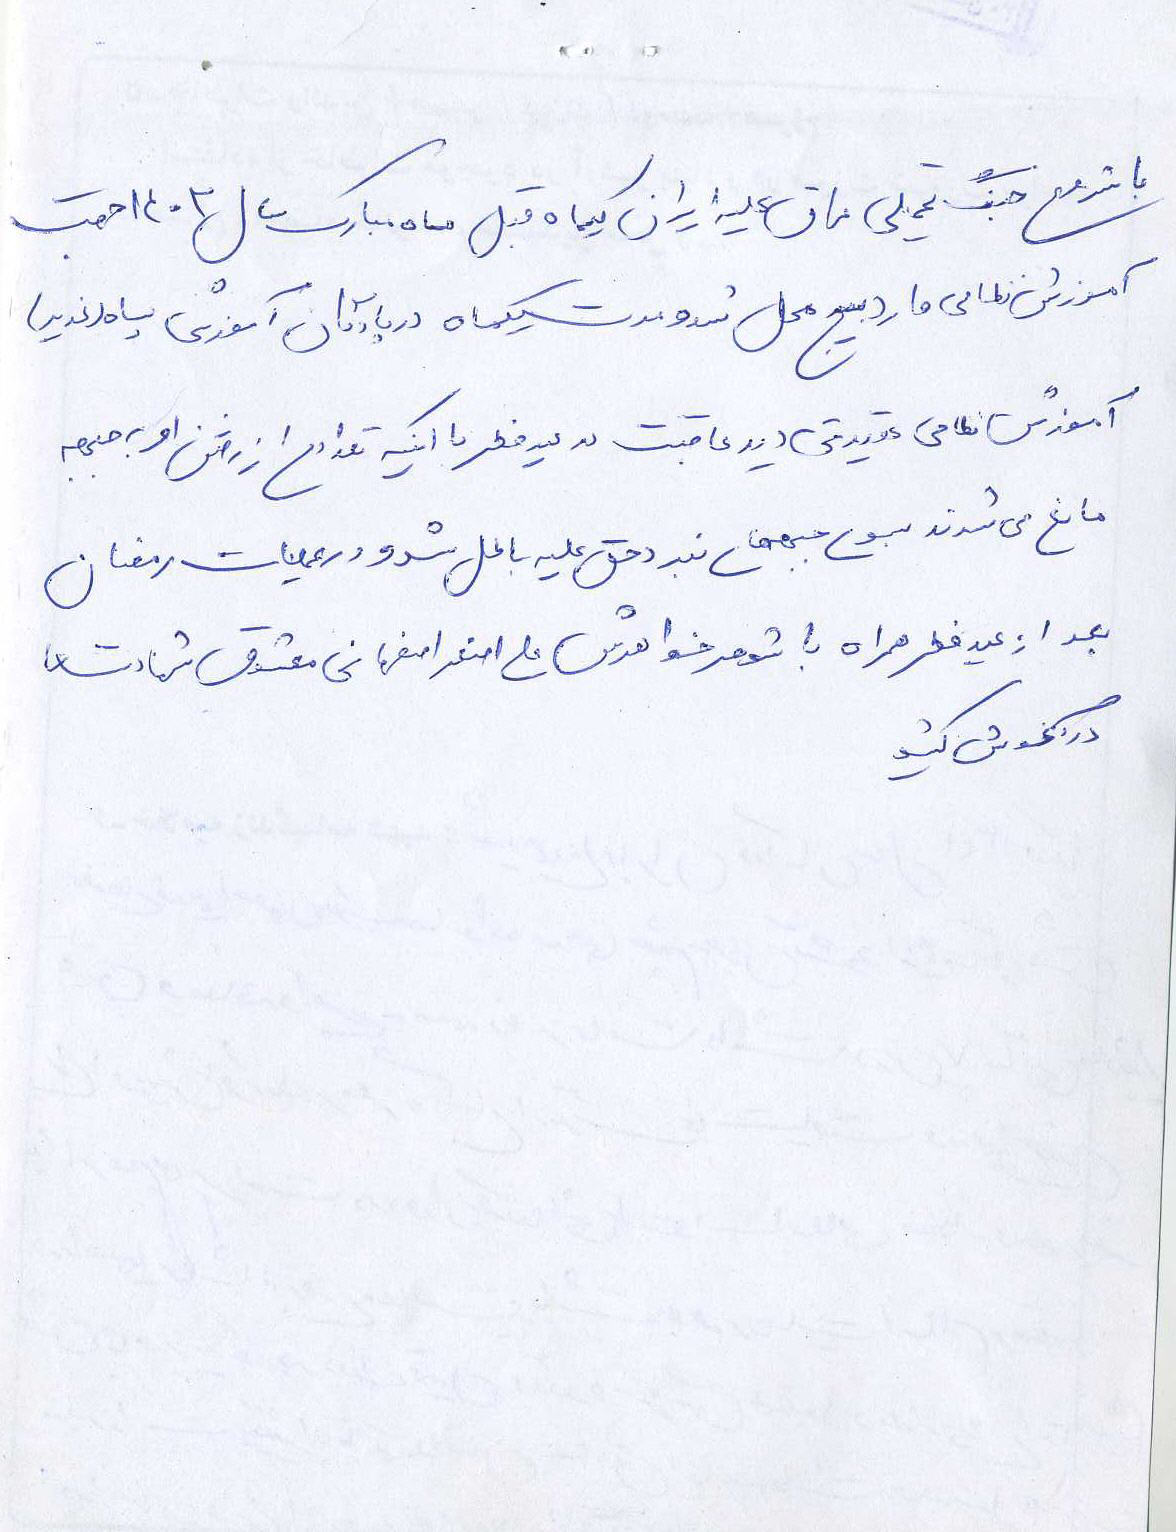 با شروع جنگ تحمیلی عراق علیه ایران یکماه قبل ماه مبارک سال ۱۴۰۲ جهت
آموزش نظامی وارد بسیج محل شد و مدت یکماه در پادگان آموزشی سپاه (غدیر)
آموزش نظامی عقیدتی دید عاقبت در عید فطر با اینکه تعدادی از رفتن او به جبهه
مانع می شدند بسوی جبهه های نبرد حق علیه باطل شد و در عملیات رمضان
بعد از عید فطر همراه با شوهر خواهرش علی اصغر اصفهانی معشوق شهادت را
در آغوش کشید